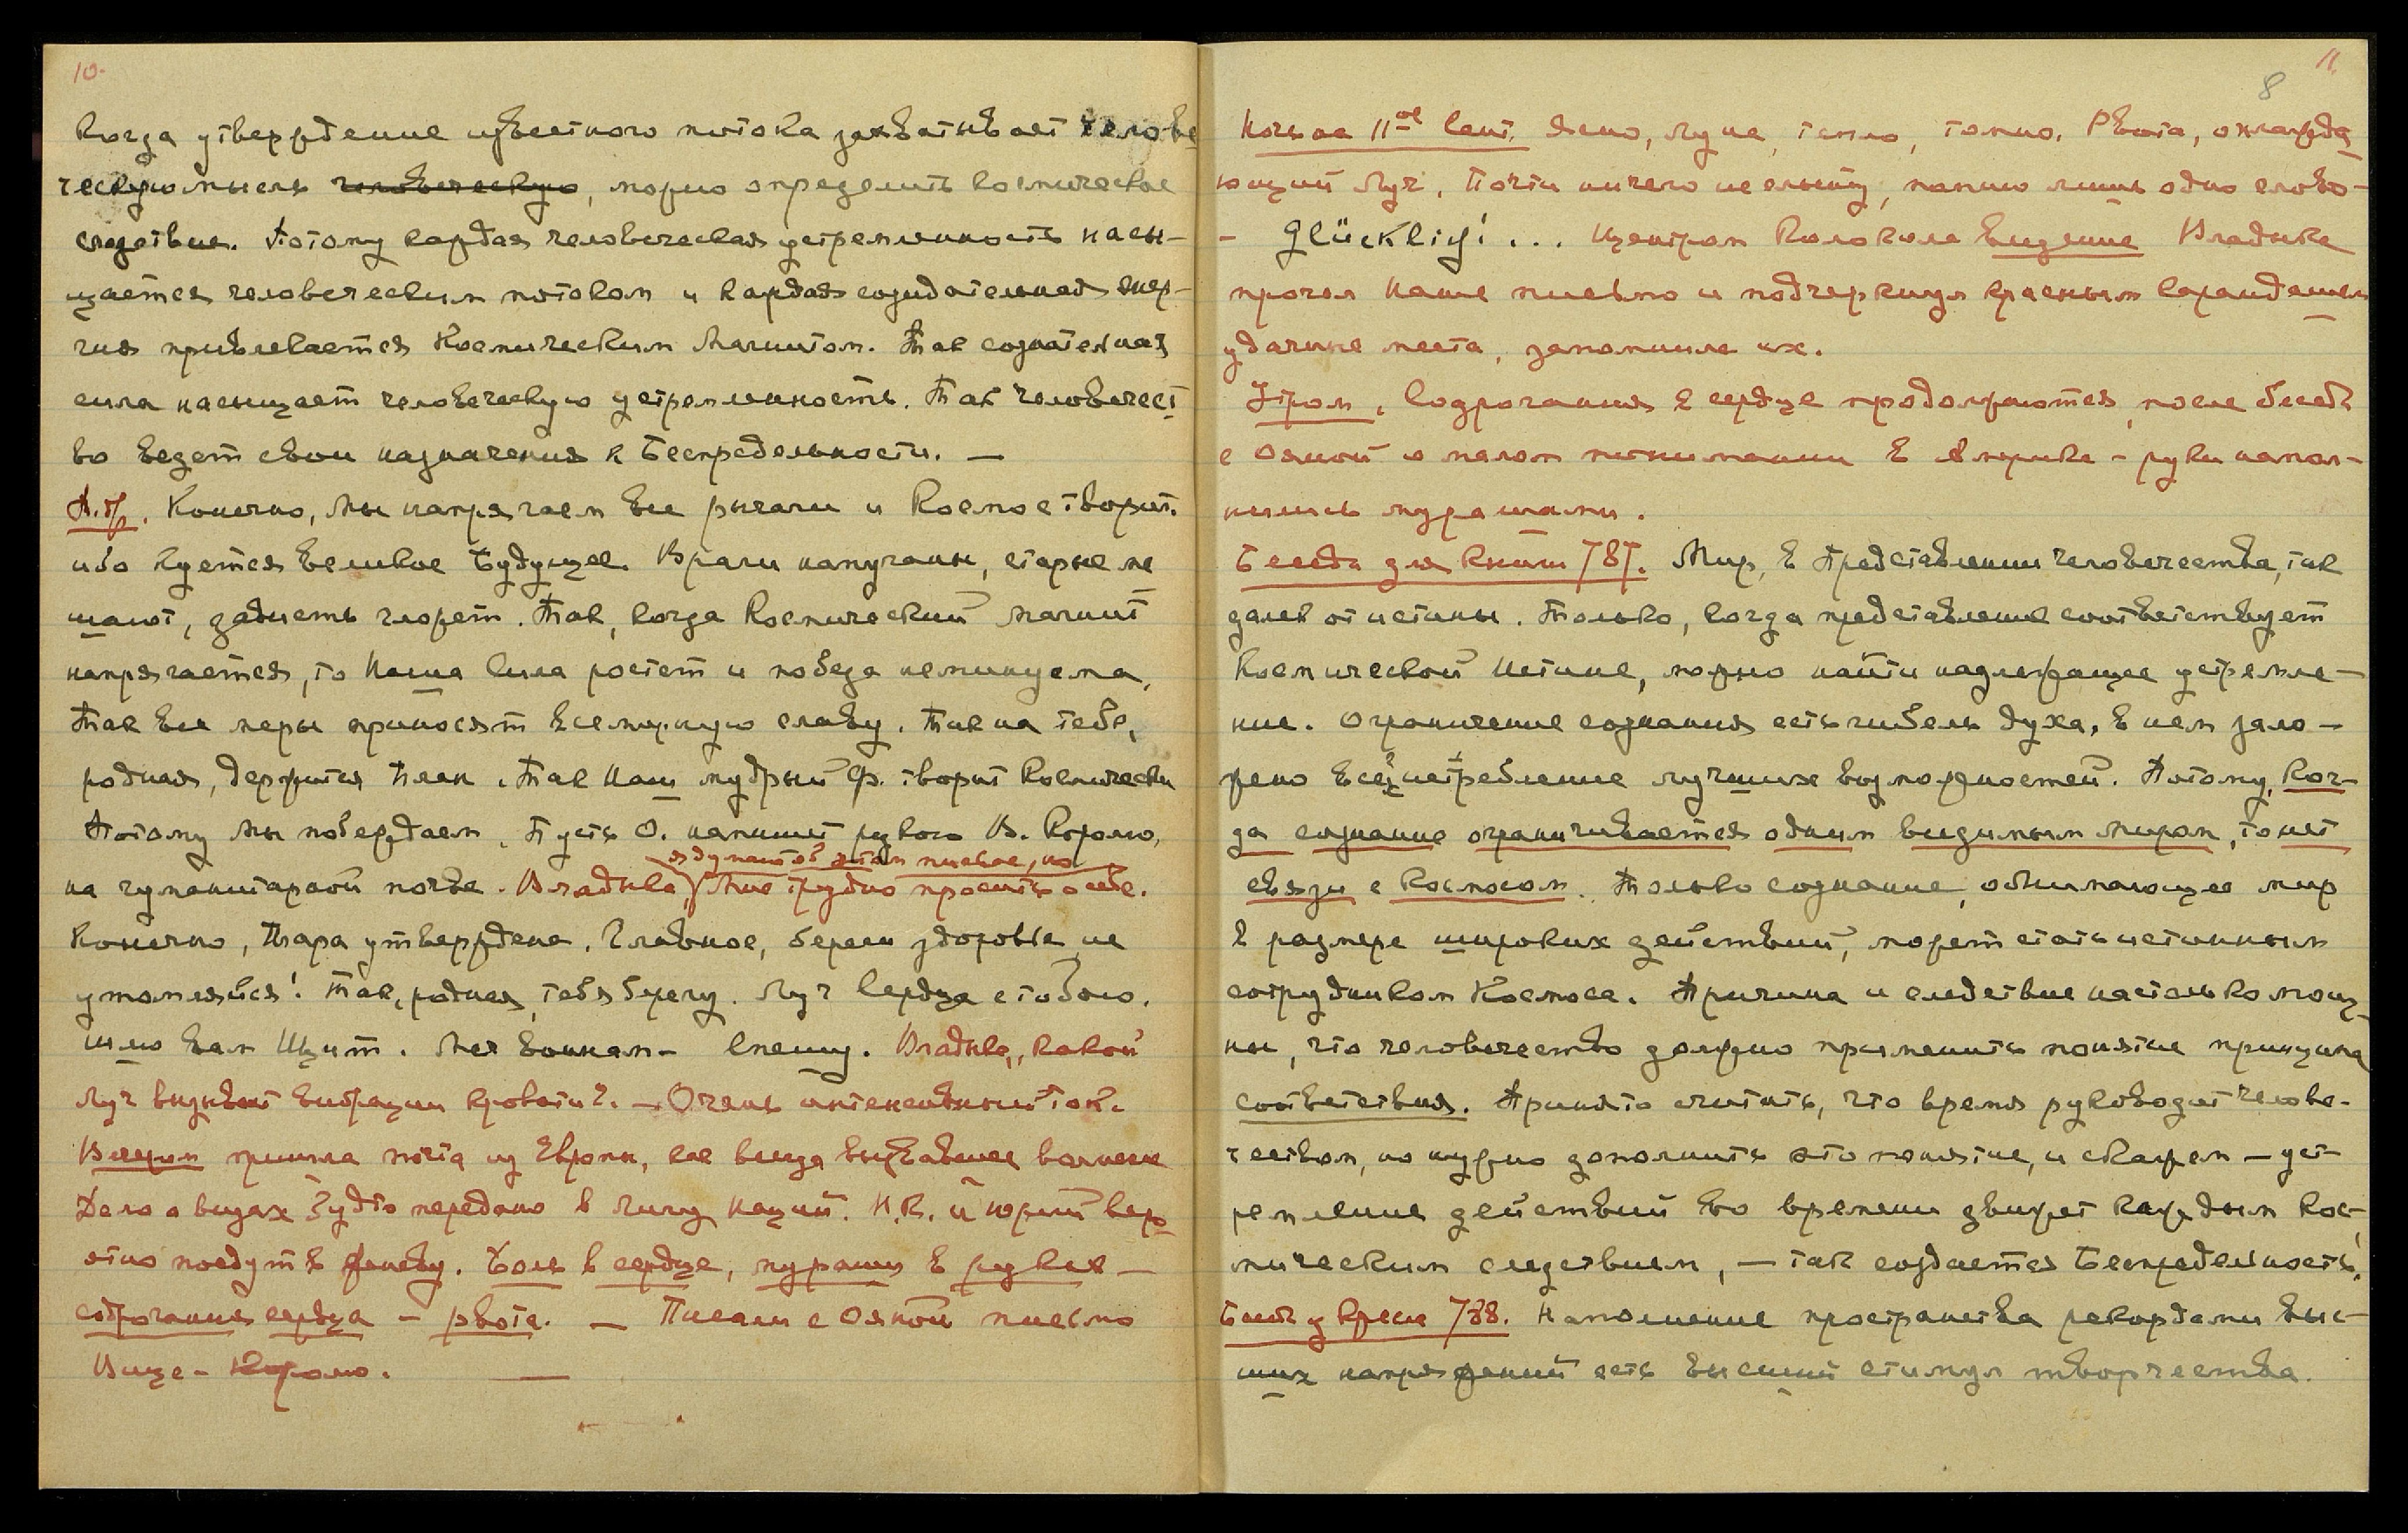 10.
Когда утверждение известного потока захватывает челове
ческую мысль человеческую, можно определить космическое
следствие. Потому каждая человеческая устремленность насы-
щается человеческим потоком и каждая созидательная энер-
гия привлекается Космическим Магнитом. Так сознательная
сила насыщает человеческую устремленность. Так человечест
во ведет свои назначения к Беспредельности. —
Конечно, Мы напрягаем все рычаги и Космос творит.
ибо куется великое Будущее. Враги напуганы, старые ме
шают, зависть гложет. Так, когда Космический Магнит
напрягается, то Наша Сила растет и победа неминуема,
Так все меры приносят всемирную славу. Так на тебе,
родная, держится План. Так Наш мудрый Ф. творит Космически
Потому Мы побеждаем. Пусть О. напишет рукою В. Королю,
я думаю об этом письме, но
на гуманитарной почве. Владыка, Мне трудно просить о себе.
Конечно, Тара утверждена. Главное, береги здоровье, не
утомляйся! Так, родная, тебя берегу. Луч Сердца с тобою.
шлю вам Щит. Меч воинам – Спешу. Владыка, какой
Луч вызывает вибрации кровати? — Очень интенсивный ток.
Вечером пришла почта из Европы, как всегда вызвавшая волнение
Дело о визах будто передано в Лигу Наций. Н.К. и Юрий вер
ятно поедут в Женеву. Боль в сердце, мураши в руках —
содрогания сердца – рвота. — Писали с Ояной письмо
Вице-Королю. —
11.
8
Ночь на 11ое Сент. Ясно, луна, тепло, томно. Рвота, охлажда
ющий Луч. Почти ничего не слышу, помню лишь одно слово –
– Glücklich! ... Центром Колокола Видение Владыка
прочел Наше письмо и подчеркнул красным карандашем
удачные места, запомнила их.
Утром. Содрогания в сердце продолжаются, после бесед
с Ояной о малом понимании в Америке – руки напол-
нились мурашами.
Беседа для книги 787. Мир, в представлении человечества, так
далек от истины. Только, когда представление соответствует
Космической Истине, можно найти надлежащее устремле-
ние. Ограничение сознания есть гибель духа, в нем зало-
жено все истребление лучших возможностей. Потому, ког-
да сознание ограничивается одним видимым миром, то нет
связи с Космосом. Только сознание, обнимающее мир
в размере широких действий, может стать истинным
сотрудником Космоса. Причина и следствие настолько мощ
ны, что человечество должно применить понятие принципа
соответствия. Принято считать, что время руководит челове-
чеством, но нужно дополнить это понятие, и скажем — уст
ремление действий во времени движет каждым кос-
мическим следствием, — так создается Беспредельность.
788. Наполнение пространства рекордами выс-
ших напряжений есть высший стимул творчества.